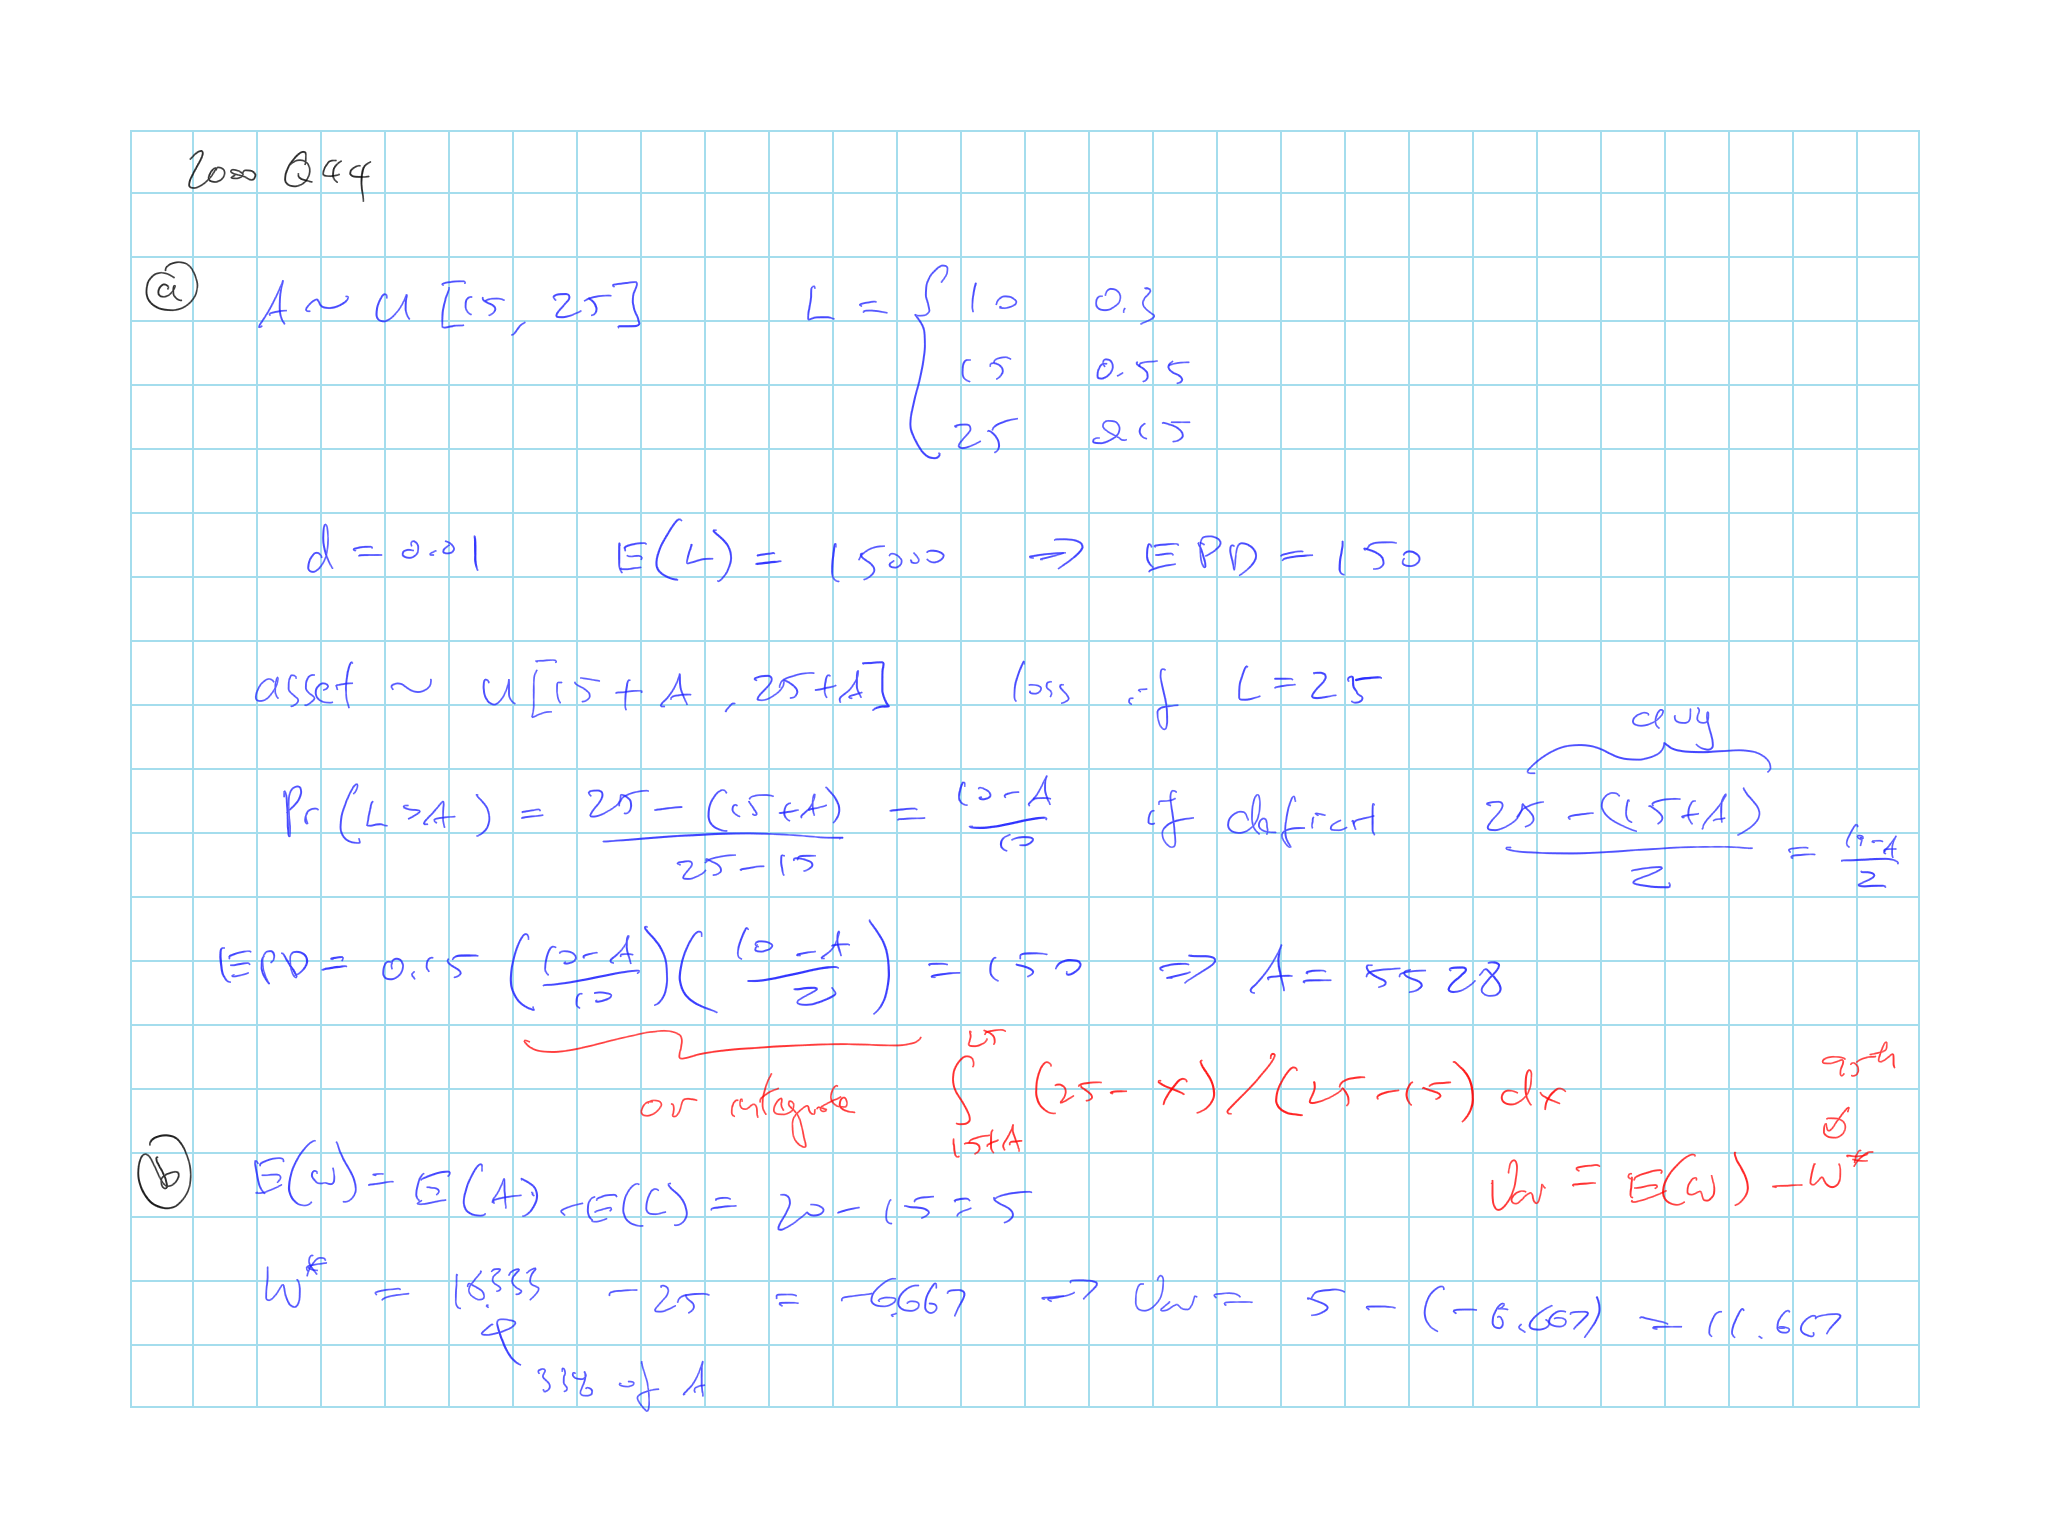 2000 Q44
(a) A ~ U [15, 25] L = { 10 0.3
15 0.55
25 0.15
d = 0.01 E(L) = 15000 => EPD = 150
asset ~ U[15+A, 25+A] loss if L=25
avg
Pr(L>A) = 25-(15+A) / 25-15 = 10-A / 10 if deficit 25-(15+A) / 2 = 10-A / 2
EPD = 0.15 (10-A / 10)(10-A / 2) = 150 => A = 5528
or integrate ∫_{15+A}^{25} (25-x)/(25-15) dx
95th
(b) E(W) = E(A) - E(L) = 20 - 15 = 5
Var = E(W) - W*
W* = 18.333 - 25 = -6.667 => Var = 5 - (-6.667) = 11.667
33% of A